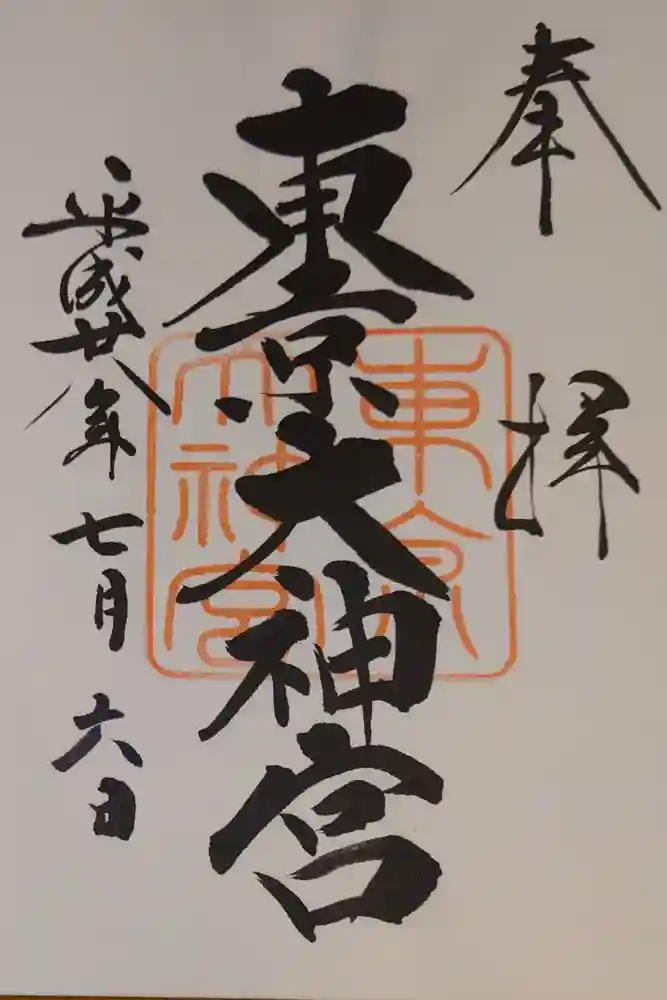 奉拝
東京大神宮
東京大神宮
平成廿八年七月六日